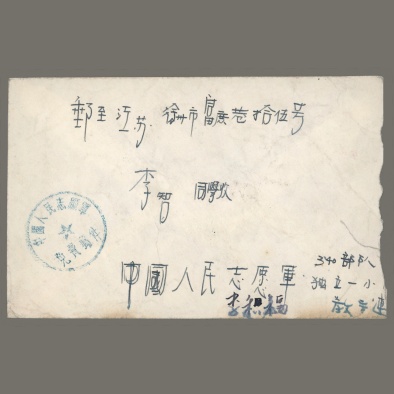 郵至江苏 徐州市富庶巷拾伍号
李智 同學收
中國人民志愿軍
免費郵件
中國人民志愿軍 340部队
独立一小
李積福 教导連